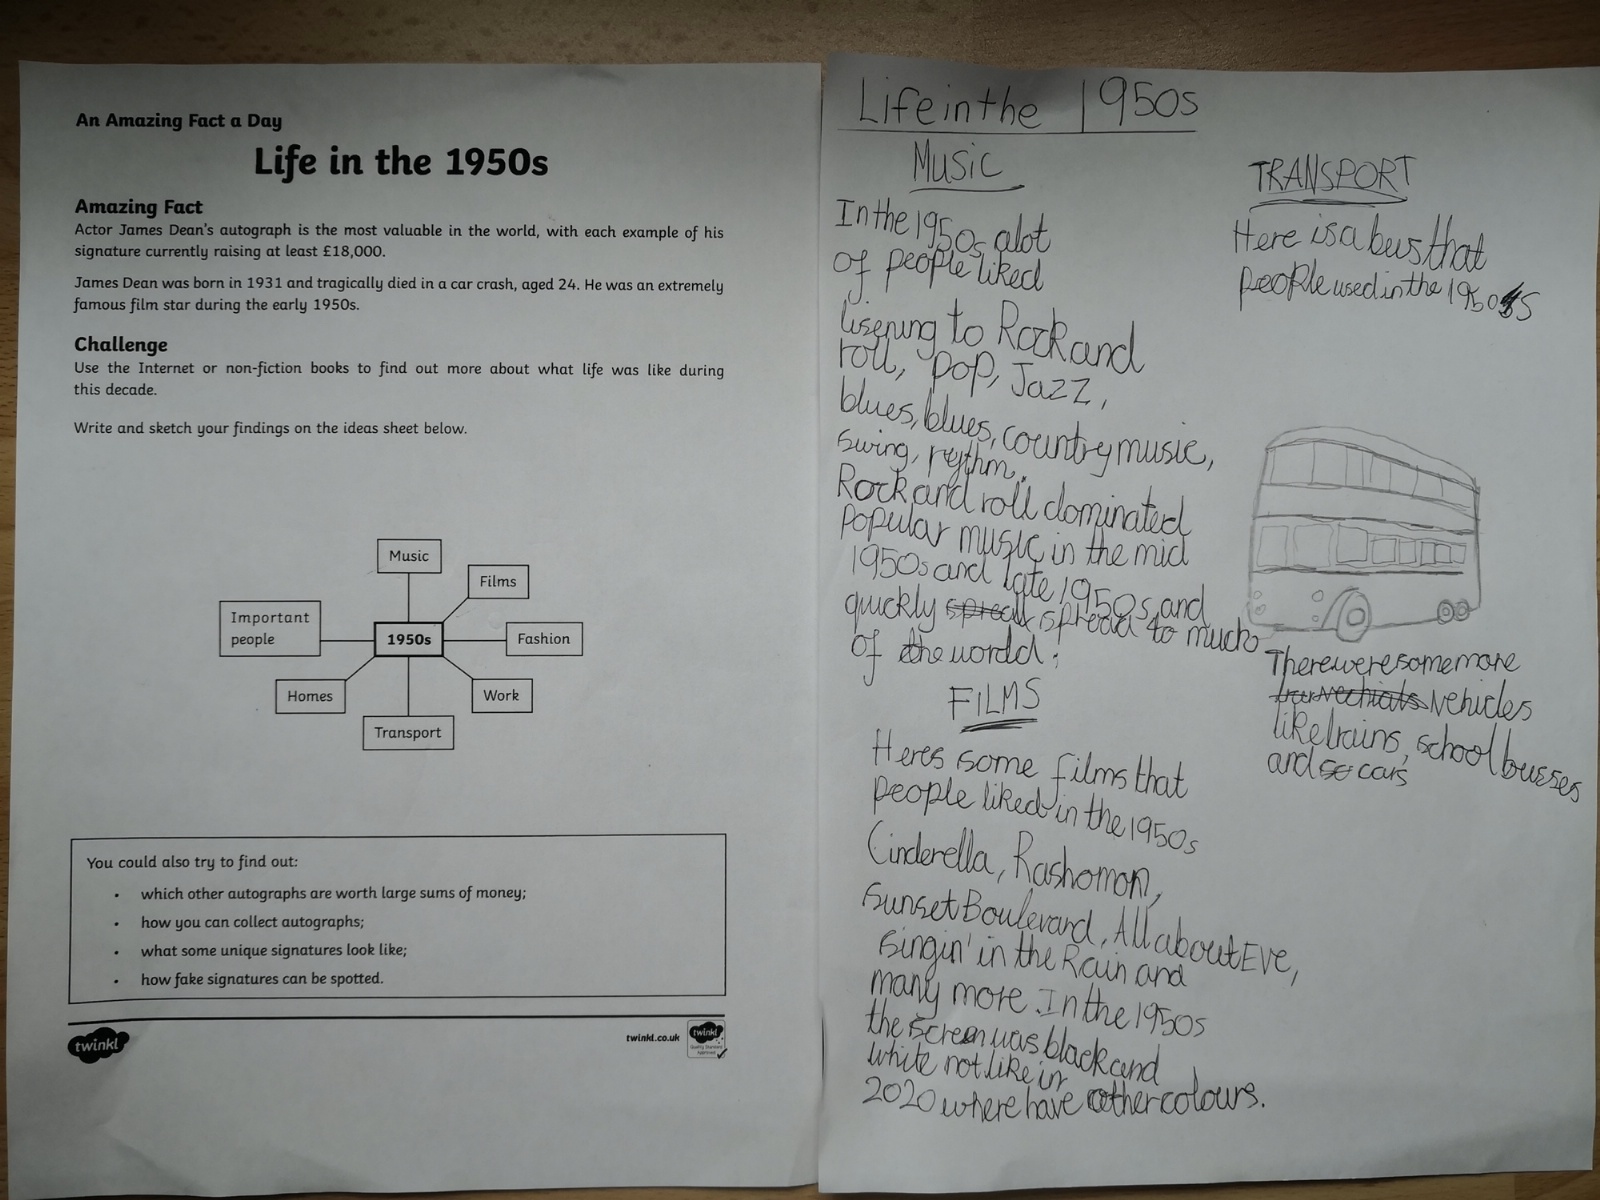 An Amazing Fact a Day
Life in the 1950s
Amazing Fact
Actor James Dean's autograph is the most valuable in the world, with each example of his
signature currently raising at least £18,000.
James Dean was born in 1931 and tragically died in a car crash, aged 24. He was an extremely
famous film star during the early 1950s.
Challenge
Use the Internet or non-fiction books to find out more about what life was like during
this decade.
Write and sketch your findings on the ideas sheet below.
Music
Films
Important
people
1950s
Fashion
Homes
Work
Transport
You could also try to find out:
• which other autographs are worth large sums of money;
• how you can collect autographs;
• what some unique signatures look like;
• how fake signatures can be spotted.
twinkl
twinkl.co.uk
twinkl
Life in the 1950s
MUSIC
In the 1950s alot
of people liked
lisening to Rock and
roll, Pop, Jazz,
blues, blues, country music,
swing, reythm.
Rock and roll dominated
popular music in the mid
1950s and late 1950s, and
quickly spread to much
of the world.
FILMS
Heres some films that
people liked in the 1950s
Cinderella, Rashomon,
Sunset Boulevard, All about Eve,
Singin' in the Rain and
many more. In the 1950s
the screen was black and
white not like in
2020 where have other colours.
TRANSPORT
Here is a bus that
people used in the 1950s
There were some more
vehicles
like trains, school busses
and cars